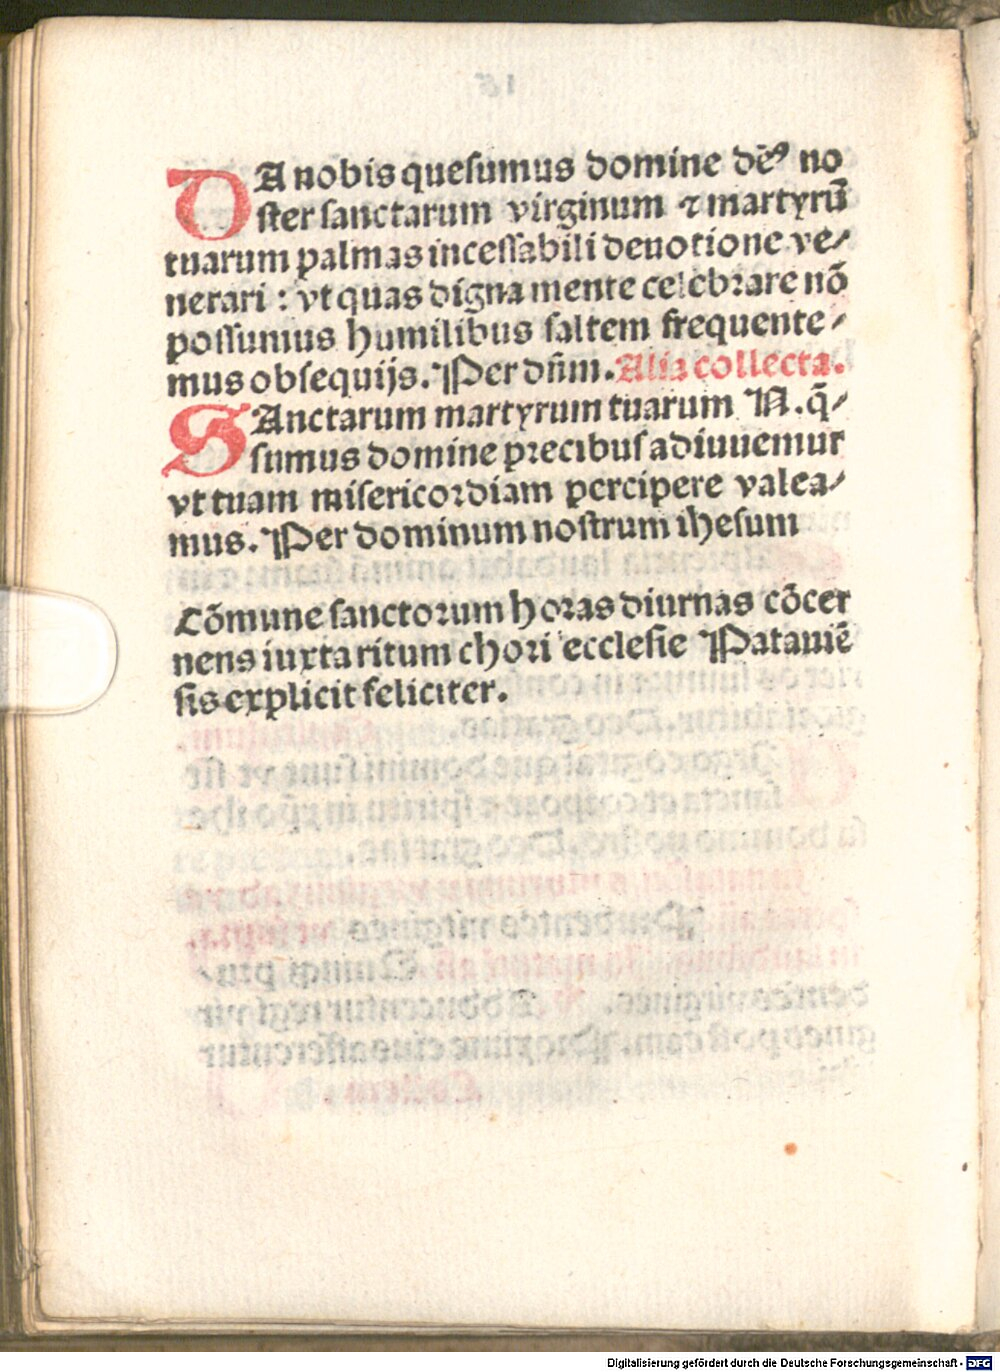 DA nobis quesumus domine dēꝰ no
ster sanctarum virginum ⁊ martyrū
tuarum palmas incessabili deuotione ve⸗
nerari : vt quas digna mente celebrare nō
possumus humilibus saltem frequente⸗
mus obsequijs. Per dn̄m. Alia collecta.
SAnctarum martyrum tuarum N. q̄⸗
sumus domine precibus adiuuemur
vt tuam misericordiam percipere valea⸗
mus. Per dominum nostrum ihesum
Cōmune sanctorum horas diurnas cōcer
nens iuxta ritum chori ecclesie Patauiē
sis explicit feliciter.
Digitalisierung gefördert durch die Deutsche Forschungsgemeinschaft - DFG